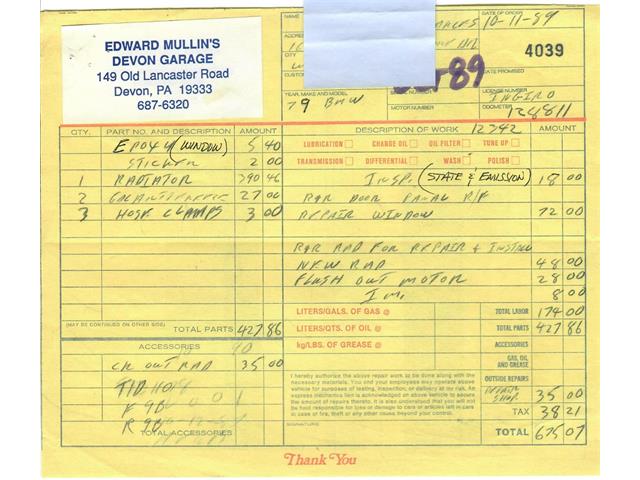 EDWARD MULLIN'S
DEVON GARAGE
149 Old Lancaster Road
Devon, PA 19333
687-6320
NAME
10-11-89
ADDRESS
4039
CITY
CUSTOMER
89
DATE PROMISED
YEAR, MAKE AND MODEL
79 BMW
SERIAL NUMBER
MOTOR NUMBER
LICENSE NUMBER
INGIRO
ODOMETER
128811
QTY. PART NO. AND DESCRIPTION AMOUNT
EPOXY (WINDOW) 5 40
STICKER 2 00
1 RADIATOR 390 46
2 GAL ANTIFREEZE 27 00
3 HOSE CLAMPS 3 00
(MAY BE CONTINUED ON OTHER SIDE)
TOTAL PARTS 427 86
ACCESSORIES
CK OUT RAD 35 00
F 9B
R 9B
TOTAL ACCESSORIES
DESCRIPTION OF WORK 12342 AMOUNT
LUBRICATION CHANGE OIL OIL FILTER TUNE UP
TRANSMISSION DIFFERENTIAL WASH POLISH
INSP. (STATE & EMISSION) 18 00
R&R DOOR PANAL R/F
REPAIR WINDOW 72 00
R&R RAD FOR REPAIR & INSTALL
NEW RAD 48 00
FLUSH OUT MOTOR 28 00
I M. 8 00
LITERS/GALS. OF GAS @
LITERS/QTS. OF OIL @
kg/LBS. OF GREASE @
TOTAL LABOR 174 00
TOTAL PARTS 427 86
ACCESSORIES
GAS, OIL AND GREASE
OUTSIDE REPAIRS
REPAIR SHOP 35 00
TAX 38 21
TOTAL 675 07
I hereby authorize the above repair work to be done along with the
necessary materials. You and your employees may operate above
vehicle for purposes of testing, inspection, or delivery at my risk. An
express mechanics lien is acknowledged on above vehicle to secure
the amount of repairs thereto. It is also understood that you will not
be held responsible for loss or damage to cars or articles left in cars
in case of fire, theft or any other cause beyond your control.
SIGNATURE
Thank You